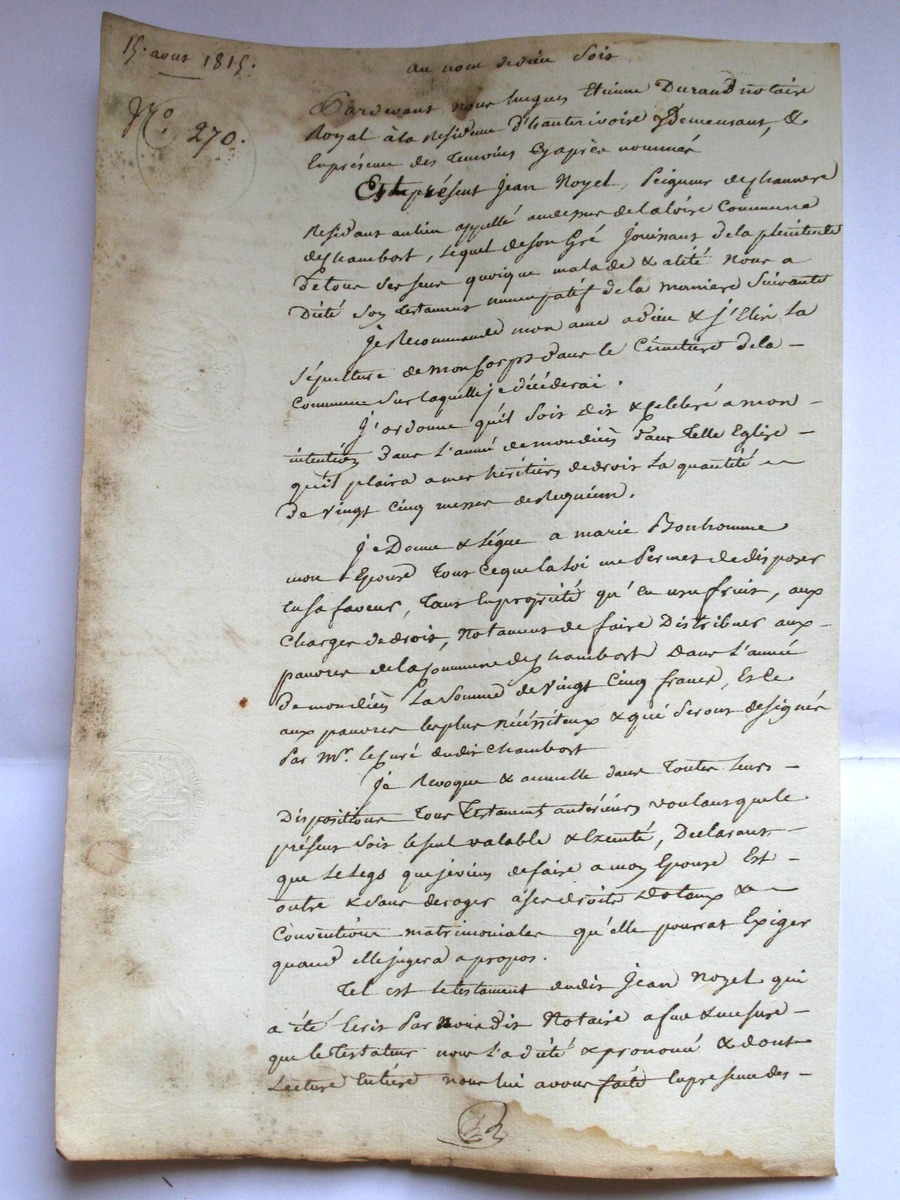 15. aout 1815.
N.º 270.
au nom de dieu Soit
Pardevant nous hugues Etienne Durand notaire
Royal à la Residence d'hauterivoire y demeurant, &
En présence des Temoins Cy après nommés
Est présent Jean Noyel, Peigneur de chanvre
Residant au lieu appellé au dessus de la loire Commune
de chambost, lequel de son Gré Jouissant de la plenitude
de tous ses sens quoique malade & alité nous a
Dicté Son testament nuncupatif de la maniere Suivante
Je Recommande mon ame a dieu & j'Elis La
Sépulture de mon Corps dans le Cimetiere de la
Commune Sur laquelle je décéderai.
J'ordonne qu'il Soit dit & Celebré a mon
intention dans L'année de mon décès dans Telle Eglise
qu'il plaira a mes héritiers de droit La quantité
de Vingt Cinq messes de Requiem.
Je Donne & Légue a marie Bonhomme
mon Epouse Tout Ce que la loi me Permet de disposer
En sa faveur, Tant En propriété qu'en usufruit, aux
Charges de droit, Notament de faire Distribuer aux
pauvres de la Commune de chambost Dans L'année
de mon décès La Somme de Vingt Cinq francs, Et Ce
aux pauvres les plus nécéssiteux & qui Seront designés
Par Mr. le Curé dudit Chambost
Je Revoque & annulle dans Toutes Leurs
Dispositions Tous Testaments antérieurs voulant que le
présent Soit le seul valable & Executé, Declarant
que Le Legs que je viens de faire a mon Epouse Est
outre & Sans deroger à ses droits dotaux &
Conventions matrimoniales qu'elle pourrat Exiger
quand elle jugera a propos.
Tel est le testament dudit Jean Noyel qui
a été Ecrit Par Nous dit Notaire a fur & mesure
que le Testateur nous L'a dicté & prononcé & dont
Lecture Entiere nous lui avons faite En présence des